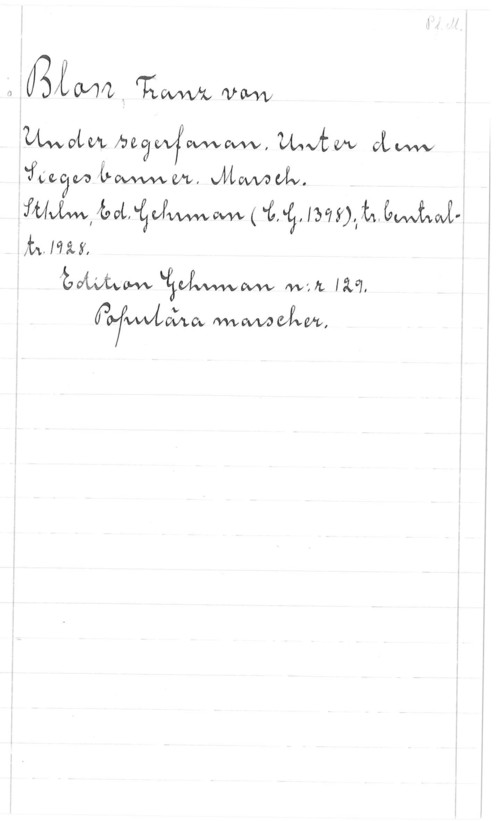 Pd. M.
Blon, Franz von
Under segerfanan. Unter dem
Siegesbanner. Marsch.
Sthlm, Ed. Gehrman (E.G. 1398); tr. Central-
tr. 1928.
Edition Gehrman n:r 129.
Populära marscher.